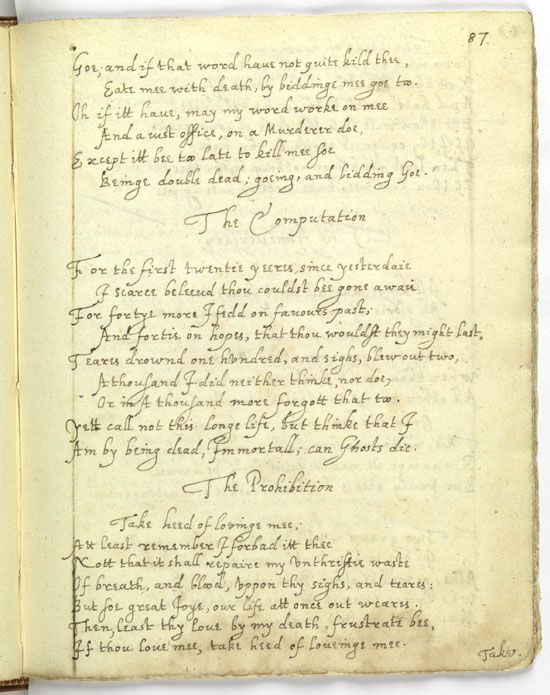 87.
Goe; and if that word have not quite kild thee,
Eate mee with death, by biddinge mee goe too.
Oh if itt have, may my word worke on mee
And a iust office, on a Murderer doe,
Except itt bee too late to kill mee soe
Beinge double dead; goeing, and bidding Goe.
The Computation
For the first twentie yeeres, since yesterdaie
I scarce beleeud thou couldst bee gone away
For fortye more I fedd on favours past;
And fortie on hopes, that thou wouldst they might last,
Teares drownd one hundred, and sighs, blew out two,
A thousand I did neither thinke, nor doe,
Or in A thousand more forgott that too.
Yett call not this longe life, but thinke that I
Am by being dead, Immortall; can Ghosts die.
The Prohibition
Take heed of lovinge mee;
Att least remember I forbad itt thee
Nott that it shall repaire my Vnthriftie waste
Of breath, and blood, Vppon thy sighs, and teares:
But soe great Joye, our life att once out weares.
Then, least thy Love by my death, frustrate bee,
If thou love mee, take heed of loveinge mee.
Take.